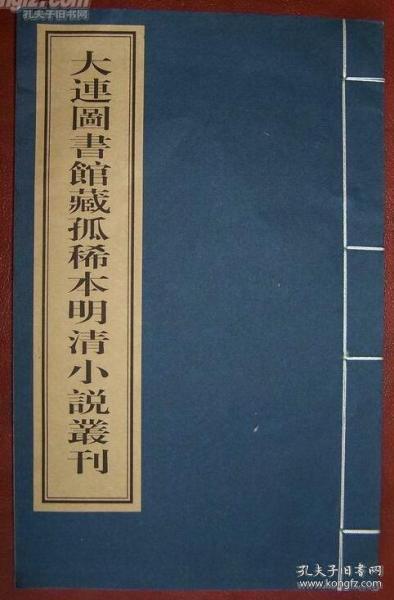 大連圖書館藏孤稀本明清小説叢刊
孔夫子旧书网
孔夫子旧书网
www.kongfz.com